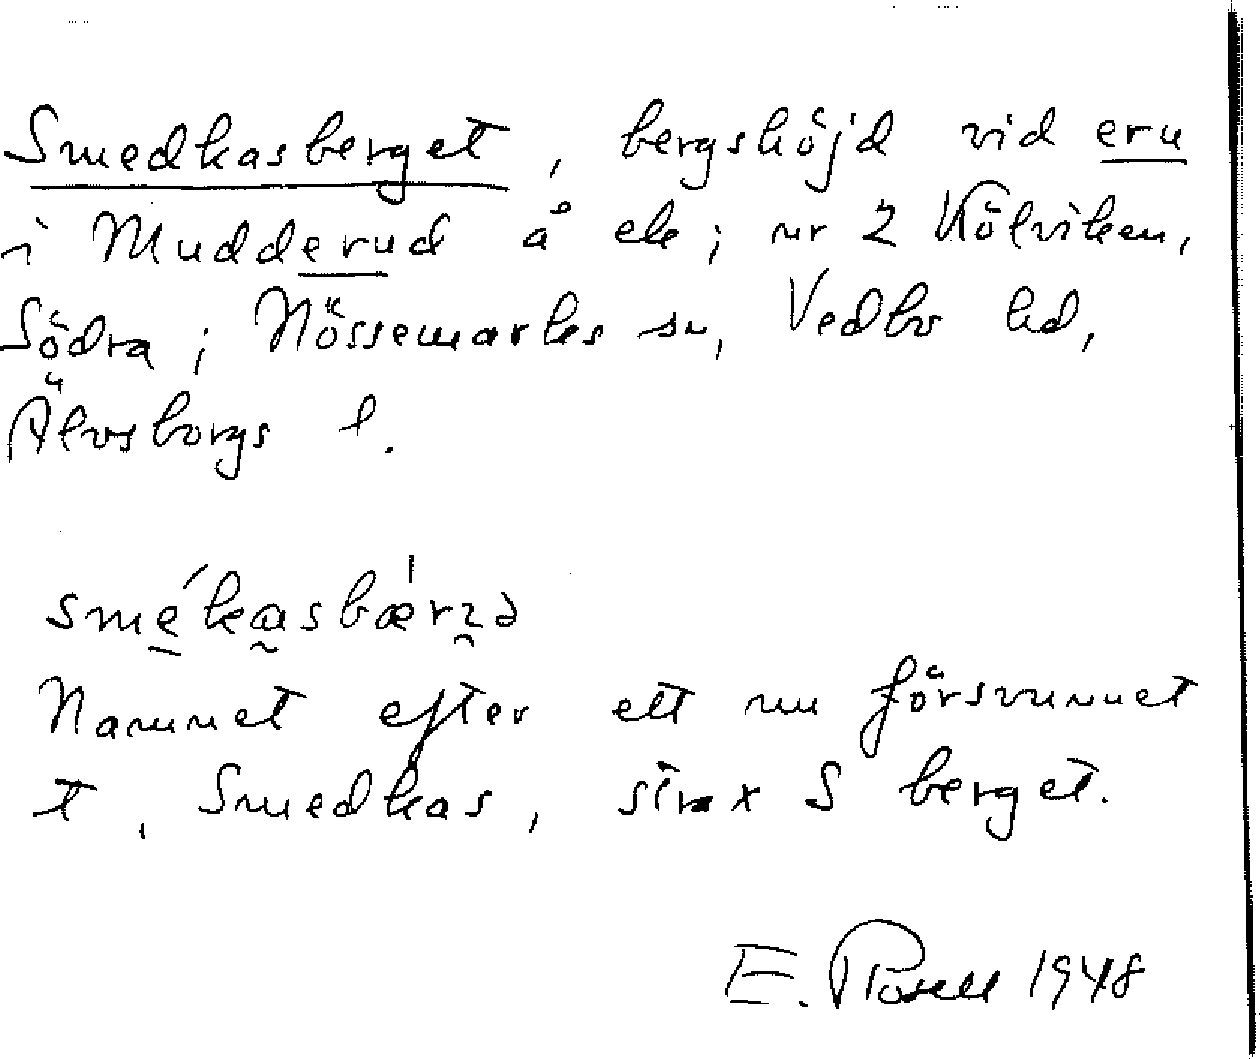 Smedkasberget, bergshöjd vid eru
i Mudderud å ek; nr 2 Kölviken,
Södra; Nössemarks sn, Vedbo hd,
Älvsborgs l.
smékasbær
Namnet efter ett nu försvunnet
t., Smedkas, strax S berget.
E. Rosell 1948